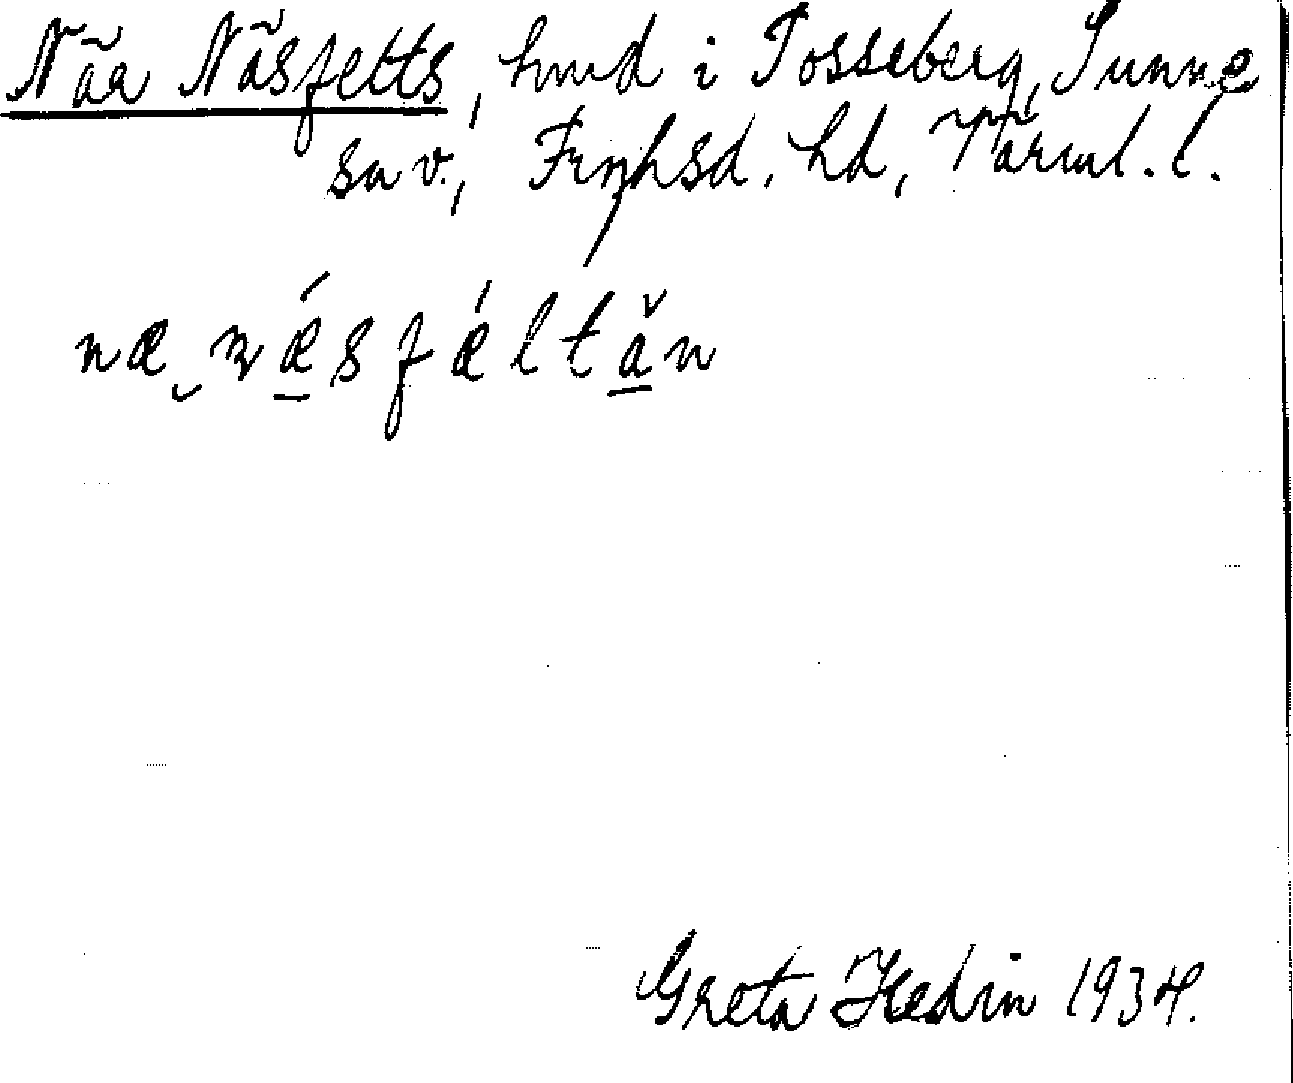 Näa Näsfetts, hmd i Tosseberg, Sunne
sn v., Frykhsd. hd, Värml. l.
næ næ´sfæ´ltăn
Greta Hedin 1934.